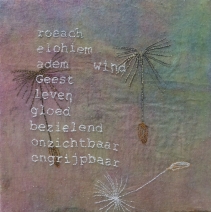 roeach
elohiem
adem wind
Geest
leven
gloed
bezielend
onzichtbaar
ongrijpbaar